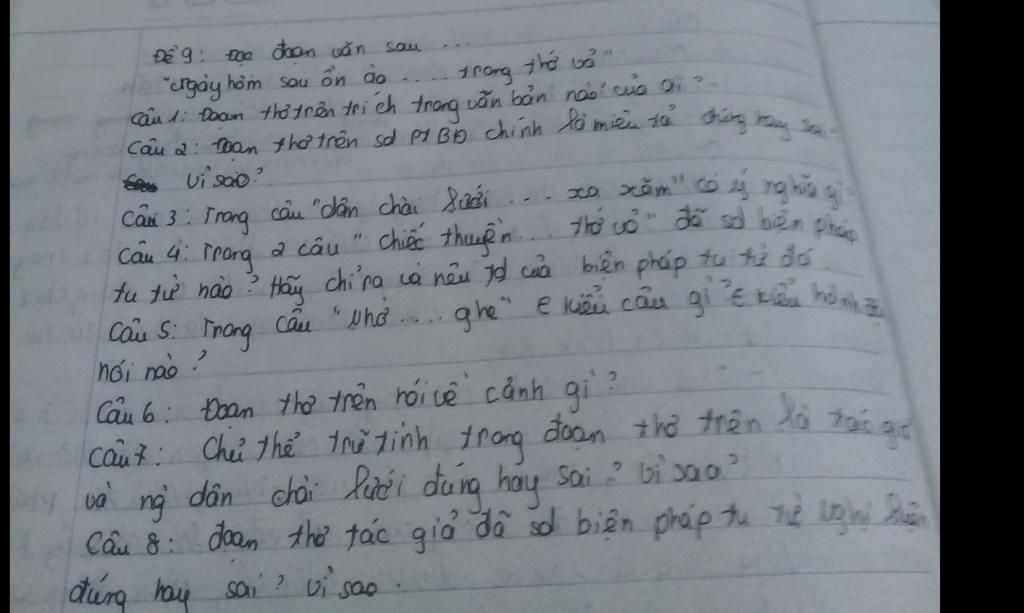 Đề 9: Đọc đoạn văn sau ...
"Ngày hôm sau ồn ào .... trong thớ vỏ"
Câu 1: Đoạn thơ trên trích trong văn bản nào? của ai?
Câu 2: Đoạn thơ trên sd PTBĐ chính là miêu tả đúng hay sai
vì sao?
Câu 3: Trong câu "dân chài lưới ... xa xăm" có ý nghĩa gì
Câu 4: Trong 2 câu "chiếc thuyền... thớ vỏ" đã sd biện pháp
tu từ nào? Hãy chỉ ra và nêu td của biện pháp tu từ đó
Câu 5: Trong câu "Nhờ .... ghe" € kiểu câu gì? € kiểu hành
nói nào?
Câu 6: Đoạn thơ trên nói về cảnh gì?
Câu 7: Chủ thể trữ tình trong đoạn thơ trên là tác giả
và ng dân chài lưới đúng hay sai? Vì sao?
Câu 8: đoạn thơ tác giả đã sd biện pháp tu từ nghị luận
đúng hay sai? Vì sao.